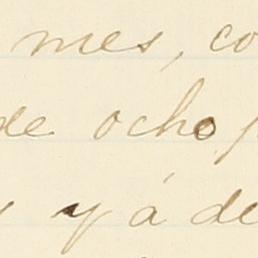 mes, co
de ocho p
y y á de